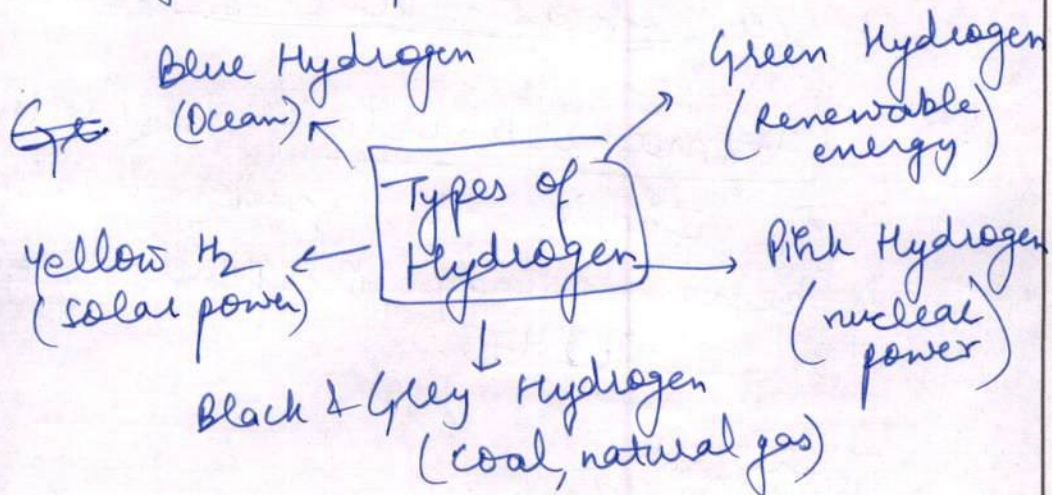 Blue Hydrogen
(Ocean)
Green Hydrogen
(Renewable
energy)
Types of
Hydrogen
Yellow H2
(solar power)
Pink Hydrogen
(nuclear
power)
Black & Grey Hydrogen
(coal, natural gas)